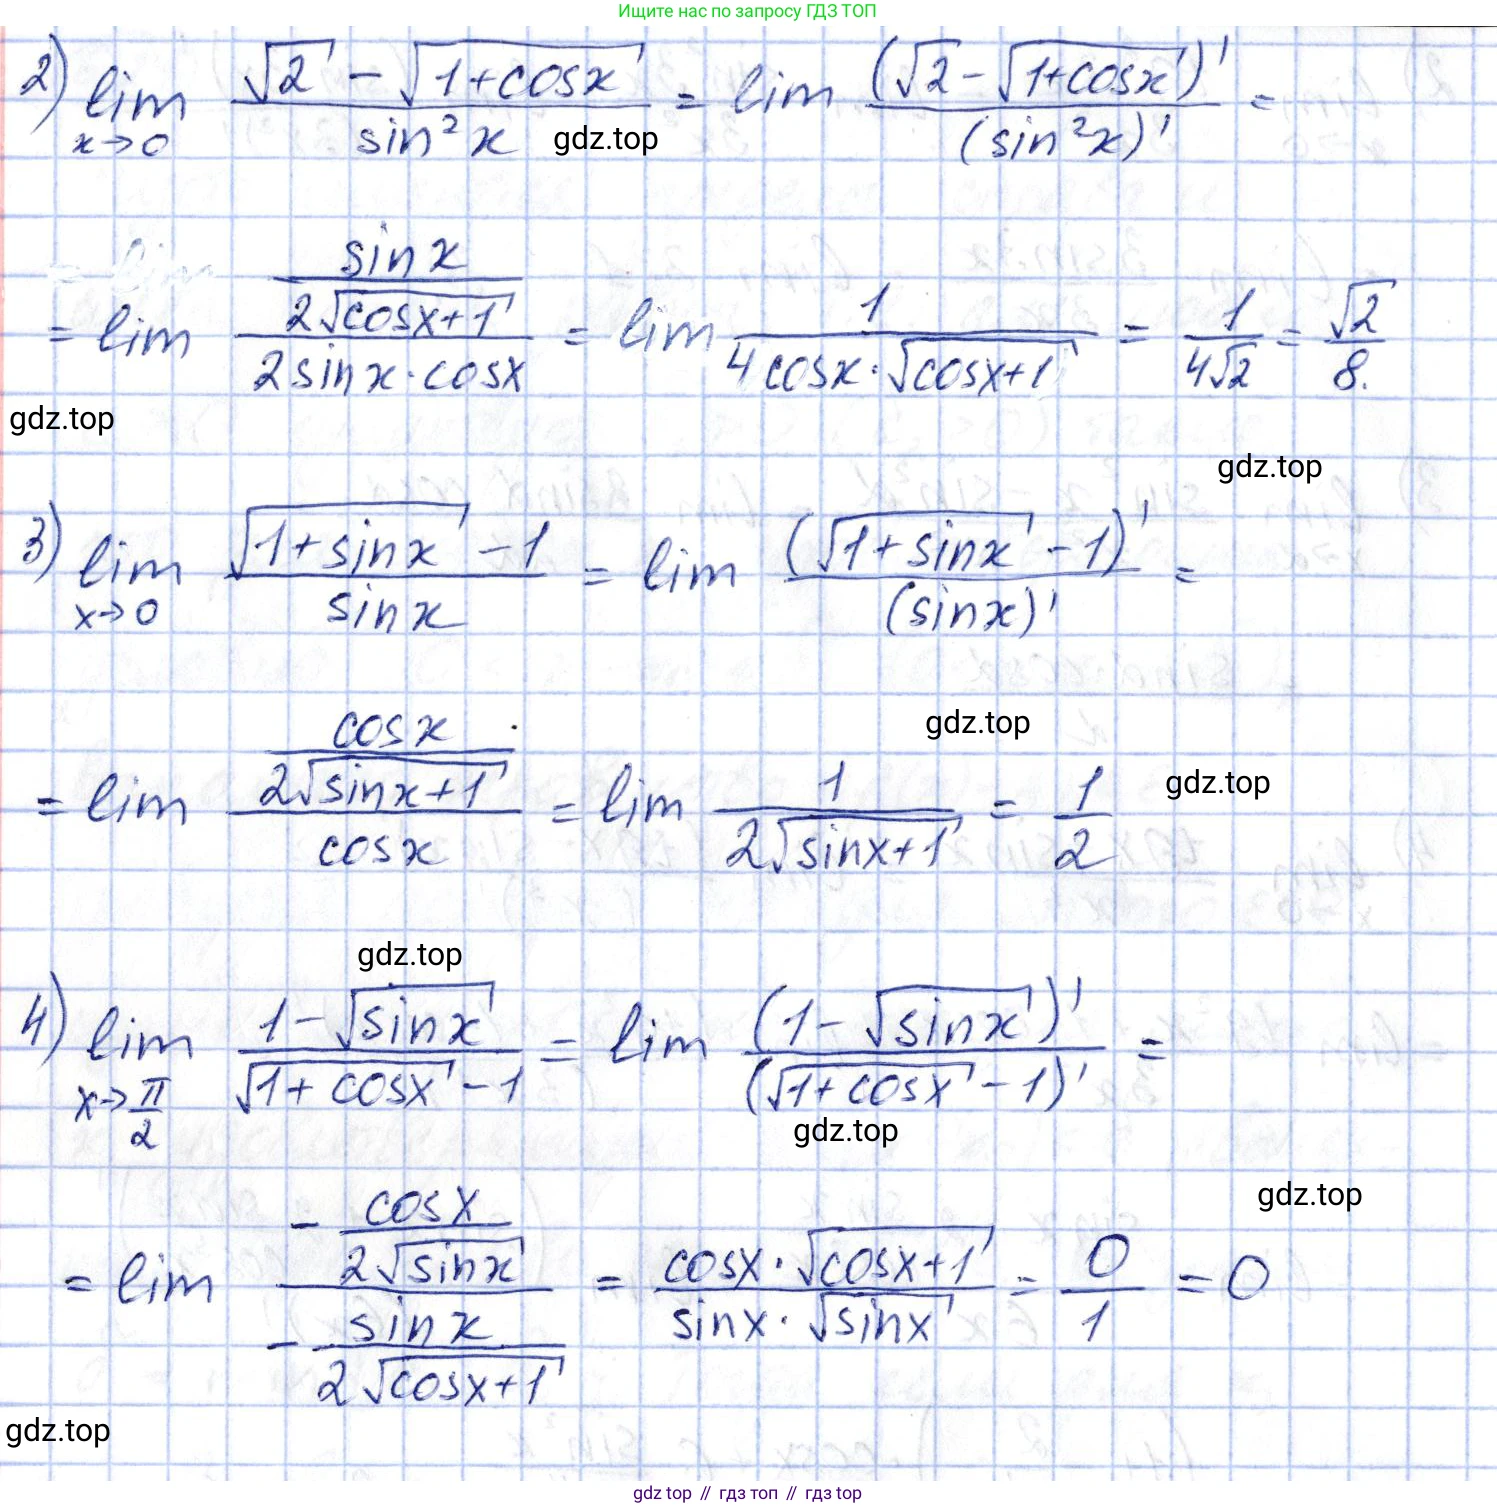 Ищите нас по запросу ГДЗ ТОП
2) lim x→0 (√2 - √(1+cosx)) / (sin²x) = lim (√2 - √(1+cosx))' / (sin²x)' =
gdz.top
= lim (sinx / (2√(cosx+1))) / (2sinx·cosx) = lim 1 / (4cosx·√(cosx+1)) = 1/(4√2) = √2/8.
gdz.top
gdz.top
3) lim x→0 (√(1+sinx) - 1) / (sinx) = lim (√(1+sinx) - 1)' / (sinx)' =
gdz.top
gdz.top
= lim (cosx / (2√(sinx+1))) / (cosx) = lim 1 / (2√(sinx+1)) = 1/2
gdz.top
4) lim x→π/2 (1 - √(sinx)) / (√(1+cosx) - 1) = lim (1 - √(sinx))' / (√(1+cosx) - 1)' =
gdz.top
gdz.top
= lim (- cosx / (2√(sinx))) / (- sinx / (2√(cosx+1))) = (cosx·√(cosx+1)) / (sinx·√(sinx)) = 0/1 = 0
gdz.top
gdz top // гдз топ // гдз top